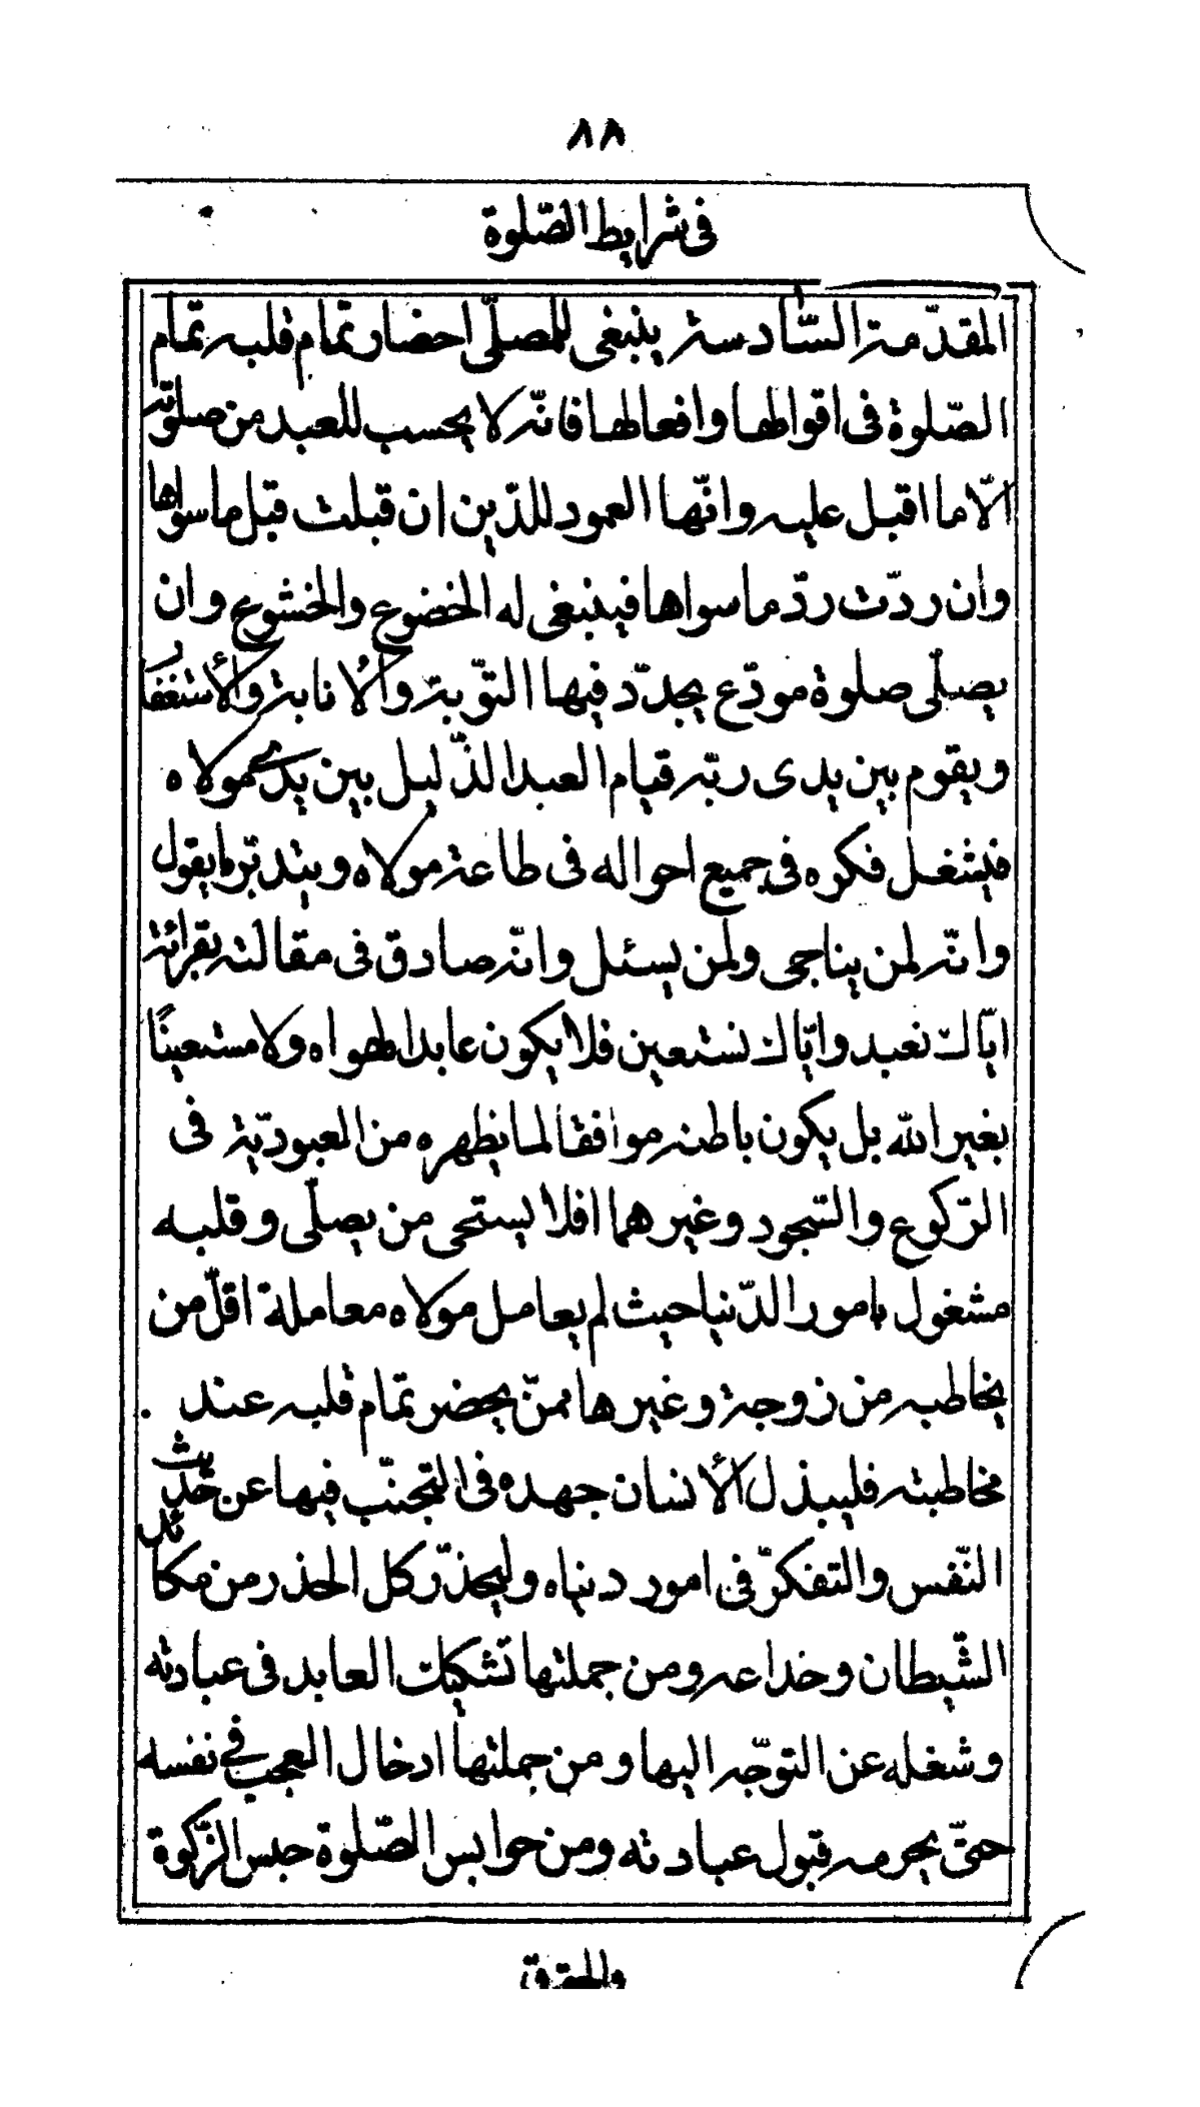 ٨٨
فی شرایط الصّلوة
المقدّمة السّادسة ینبغی للمصلّی احضار تمام قلبه تمام
الصّلوة فی اقوالها وافعالها فانّه لا یحسب للعبد من صلوته
الّا ما اقبل علیه وانّها العمود للدّین ان قبلت قبل ماسواها
وان ردّت ردّ ماسواها فینبغی له الخضوع والخشوع وان
یصلّی صلوة مودّع یجدّد فیها التّوبة والانابة والأستغفار
ویقوم بین یدی ربّه قیام العبد الذّلیل بین یدی مولاه
فیشغل فکره فی جمیع احواله فی طاعة مولاه ویتدبّر ما یقول
وانّه لمن یناجی ولمن یسئل وانّه صادق فی مقالته بقرائة
ایّاک نعبد وایّاک نستعین فلا یکون عابدا لهواه ولا مستعینًا
بغیر الله بل یکون باطنه موافقا لما یظهره من العبودیّة فی
الرّکوع والسّجود وغیرهما افلا یستحی من یصلّی وقلبه
مشغول بامور الدّنیا حیث لم یعامل مولاه معاملة اقلّ من
یخاطبه من زوجة وغیرها ممّن یحضر تمام قلبه عند
مخاطبته فلیبذل الأنسان جهده فی التجنّب فیها عن حدیث
النّفس والتفکّر فی امور دنیاه ولیحذّر کل الحذر من مکائل
الشّیطان وخداعه ومن جملتها تشکیک العابد فی عبادته
وشغله عن التوجّه الیها ومن جملتها ادخال العجب فی نفسه
حتیّ یحرمه قبول عبادته ومن حوابس الصّلوة حبس الزّکوة
والحقوق